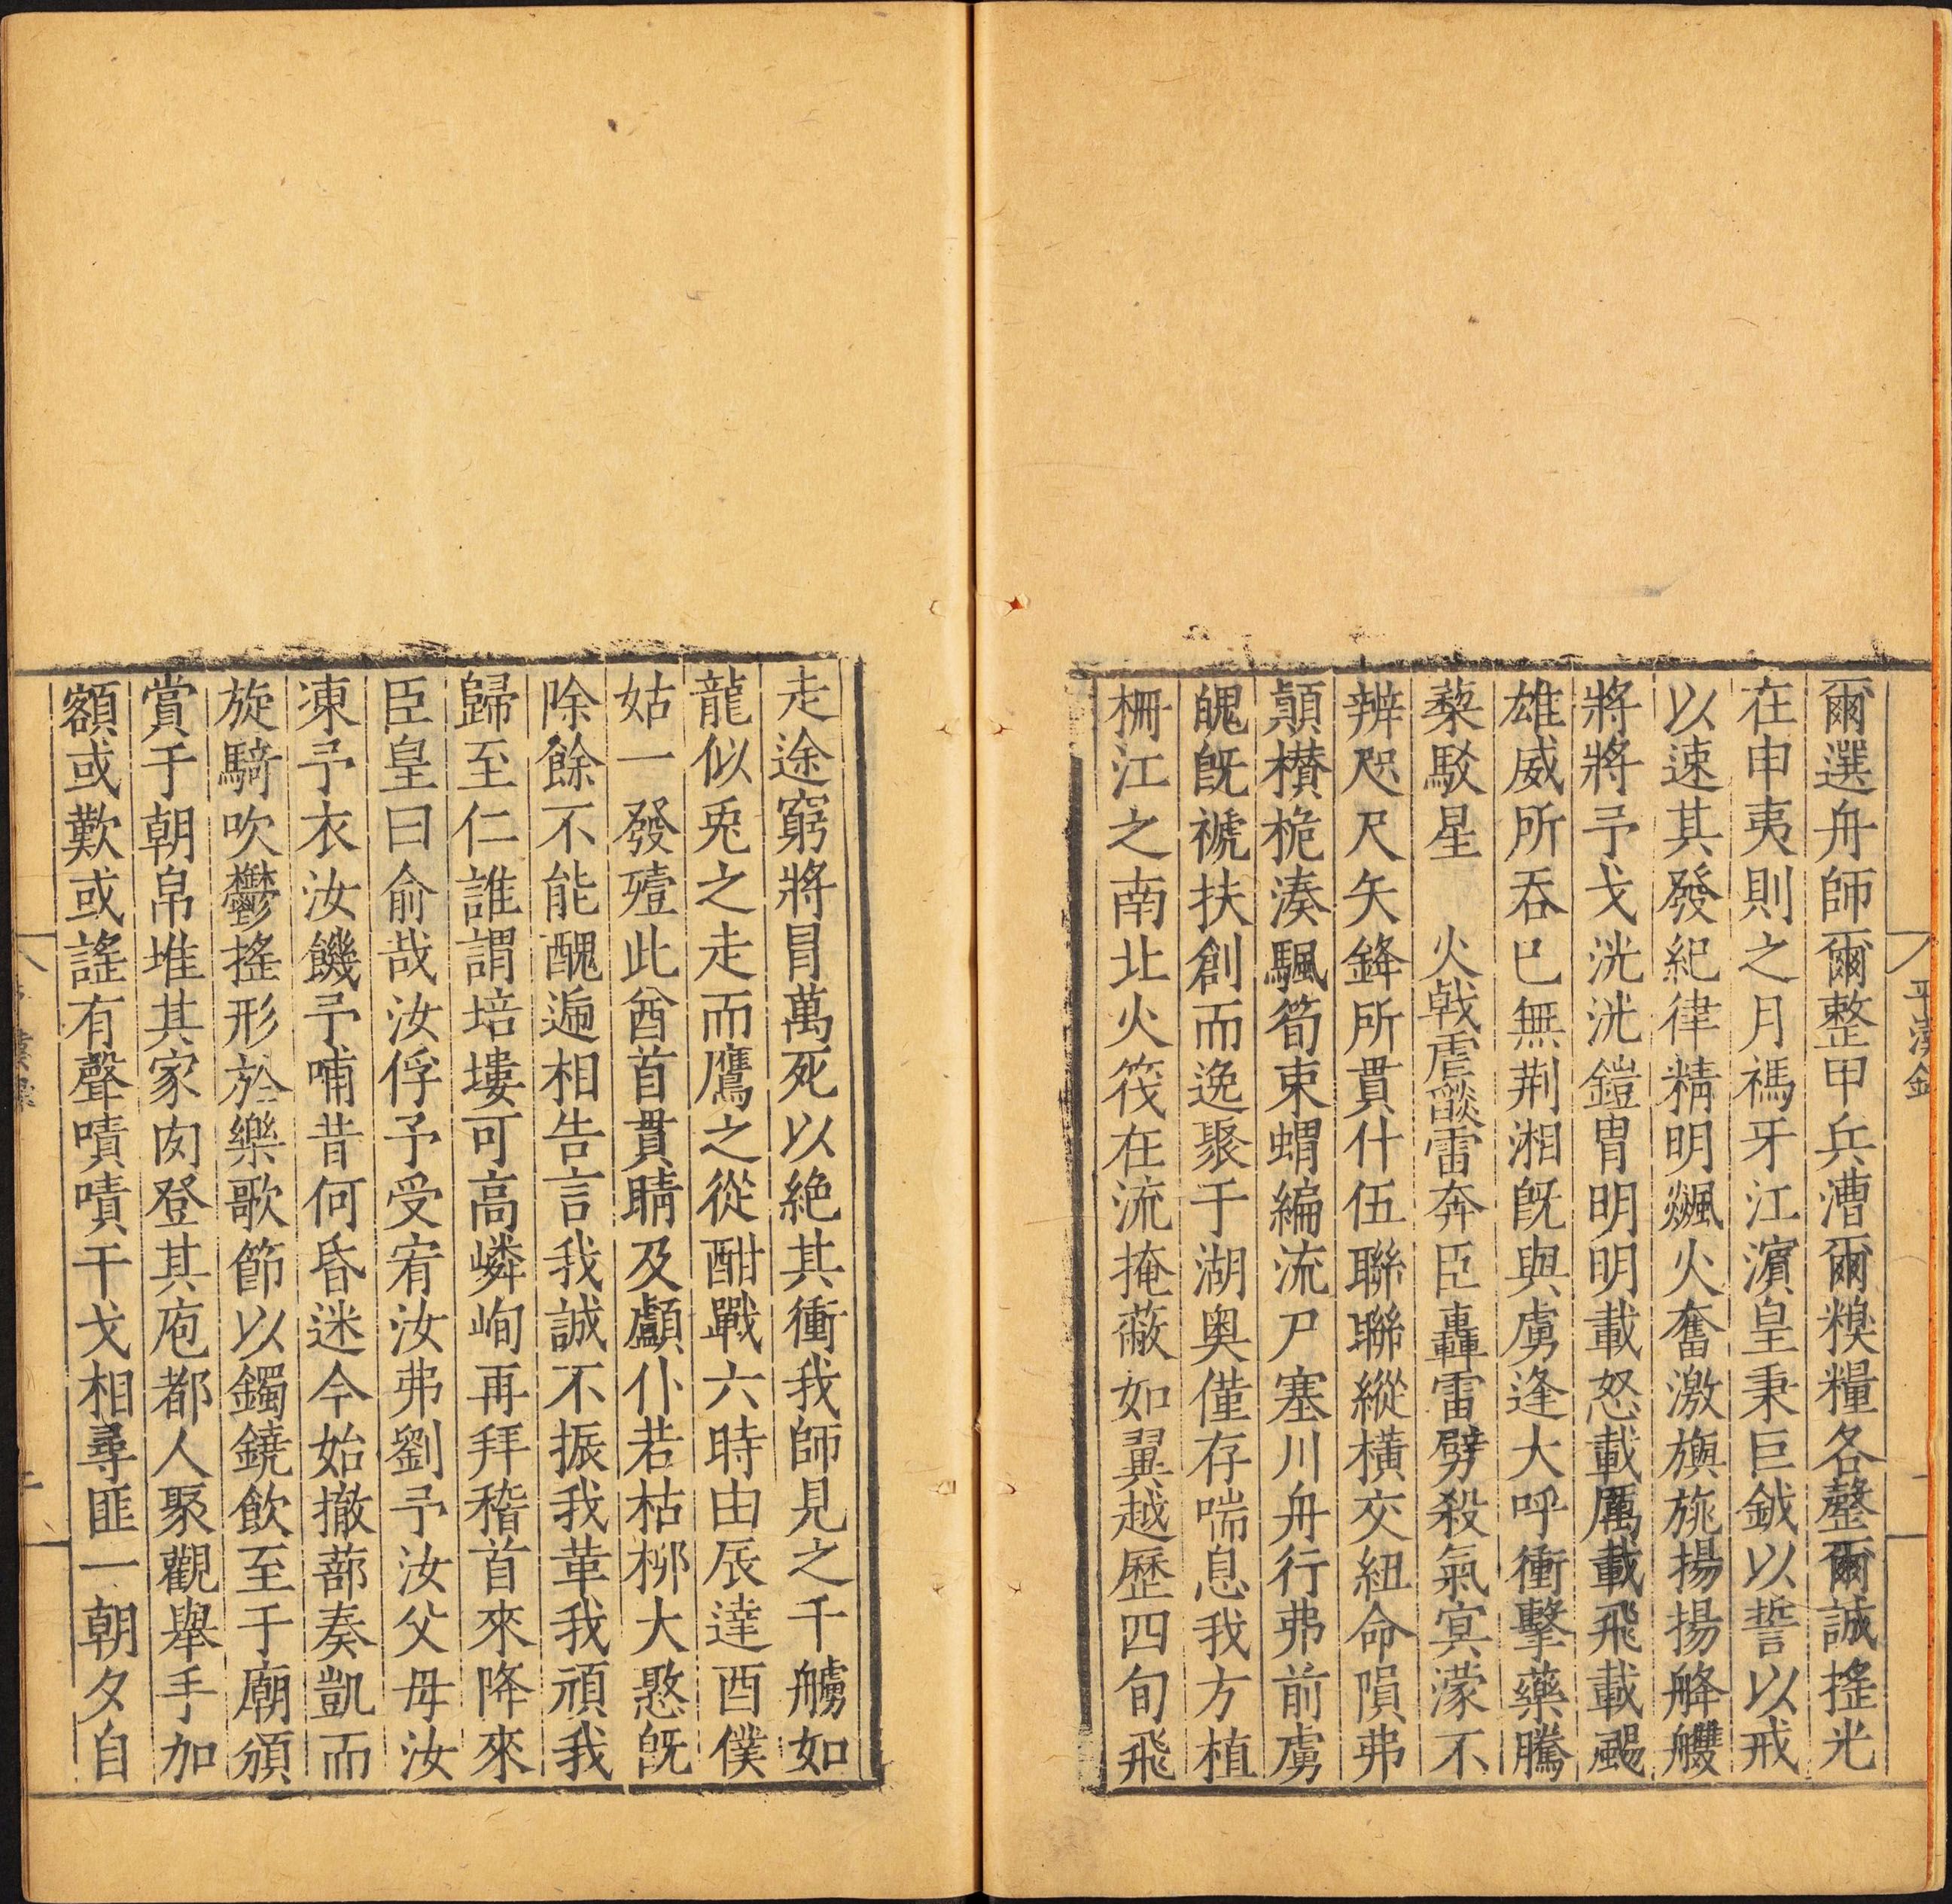 爾選舟師爾整甲兵漕爾糗糧各罄爾誠搖光
在申夷則之月禡牙江濵皇秉巨鉞以誓以戒
以速其發紀律精明飈火奮激旟旐揚揚舽艭
將將予戈洸洸鎧胄明明載怒載厲載飛載颺
雄威所吞已無荆湘旣與虜逢大呼衝擊藥騰
藜駁星 火戟虐燄雷奔臣轟雷劈殺氣冥濛不
辨咫尺矢鋒所貫什伍聯聯縱橫交紐命隕弗
顛櫕桅湊颿筍束蝟編流尸塞川舟行弗前虜
醜旣褫扶創而逸聚于湖奥僅存喘息我方植
柵江之南北火筏在流掩蔽如翼越歷四旬飛
走途窮將冒萬死以絶其衝我師見之千艣如
龍似兎之走而鷹之從酣戰六時由辰達酉僕
姑一發殪此酋首貫睛及顱仆若枯栁大憝旣
除餘不能醜遍相告言我誠不振我革我頑我
歸至仁誰謂培塿可高嶙峋再拜稽首來降來
臣皇曰俞哉汝俘予受宥汝弗劉予汝父母汝
凍予衣汝饑予哺昔何昏迷今始撤蔀奏凱而
旋騎吹鬱搖形於樂歌節以鐲鐃飲至于廟頒
賞于朝帛堆其家肉登其庖都人聚觀舉手加
額或歎或謠有聲嘖嘖干戈相尋匪一朝夕自
平漢錄